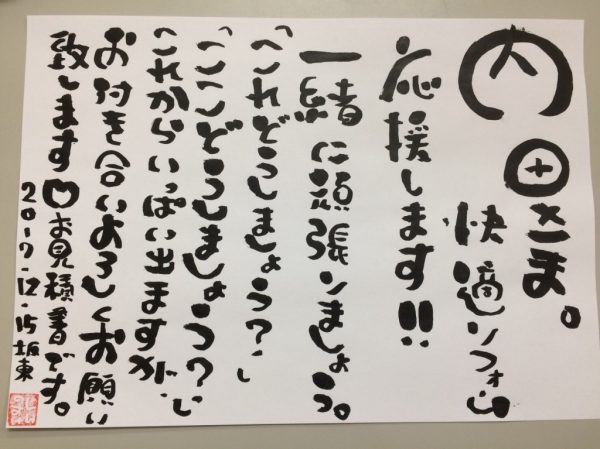 内田さま。
快適リフォーム
応援します!!
一緒に頑張りましょう。
「これどうしましょう?」
「ここどうしましょう?」
これからいっぱい出ますが、
お付き合いよろしくお願い
致します♡お見積書です。
2017.12.15 坂東